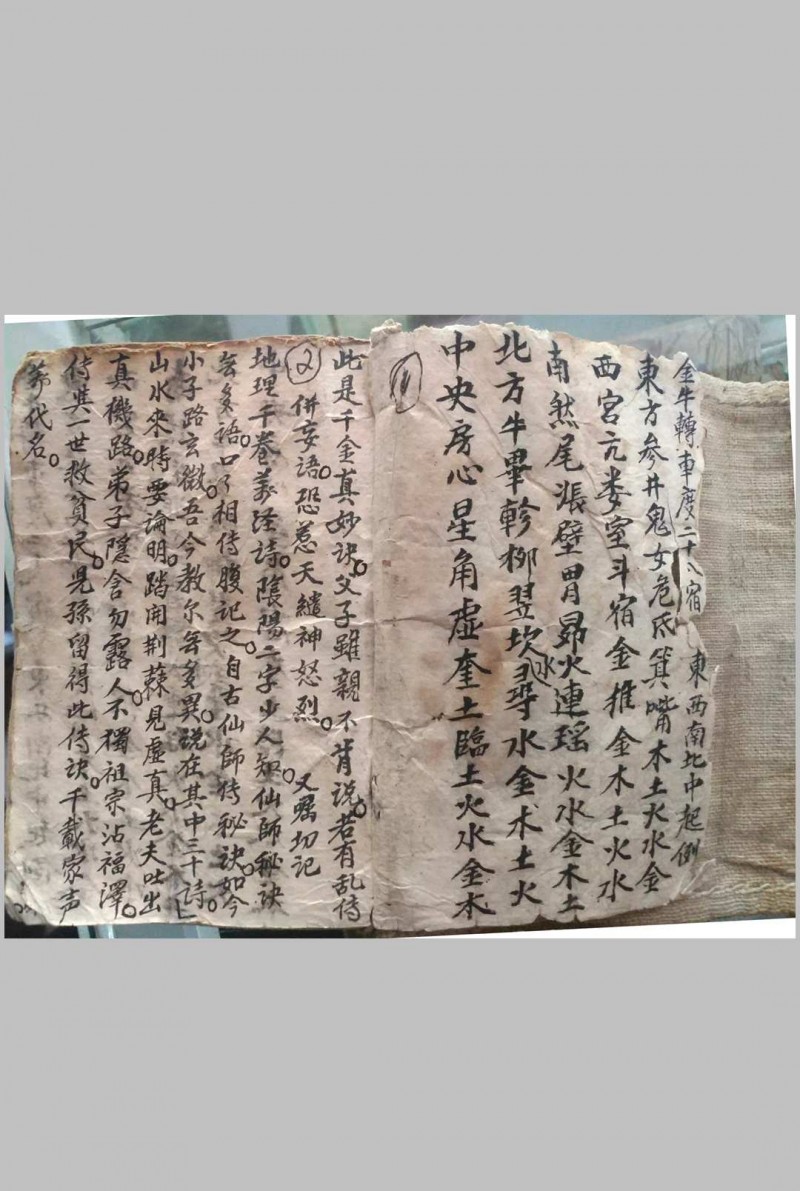 金牛轉車度二十八宿 東西南北中起例
東方參井鬼女危氐箕嘴木土火水金
西宮亢娄室斗宿金推金木土火水
南然尾張壁胃昴火連瑶火水金木土
北方牛畢軫柳翌坎水尋水金木土火
中央房心星角虛奎土臨土火水金木
1
此是千金真妙诀。父子雖親不肯说。若有乱传
2
併妄语。恐惹天譴神怒烈。 又嘱切记
地理千卷萬经詩。陰陽二字少人知。仙師秘诀
無多语。口口相传腹记之。自古仙師传秘诀。如今
小子路玄微。吾今教尔無多異。说在其中三十詩。
山水來時要論明。踏開荆蕀見虛真。老夫吐出
真機路。弟子隐含勿露人。不獨祖宗沾福澤。
传其一世救貧民。児孫留得此传诀。千載家声
萬代名。